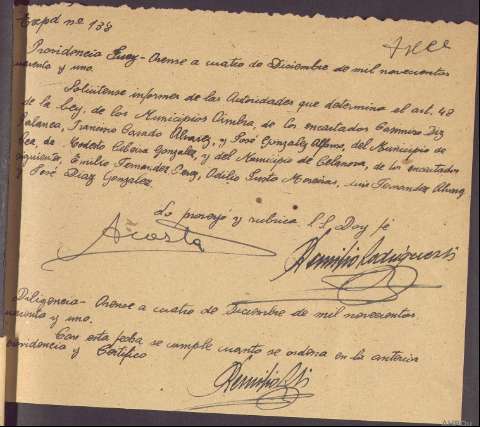 Expd nº 138
trece
Providencia Juez - Orense a cuatro de Diciembre de mil novecientos
cuarenta y uno.
Solicitense informes de las Autoridades que determina el art. 48
de la ley, de los Municipios Cimbra, de los encartados Casimiro Diz
Francisco Casado Alvarez, y José Gonzalez Alfonso, del Municipio de
de Modesto Gonzalez, y del Municipio de Celanova, de los encartados
siguiente, Emilio Fernandez Perez, Odilio Justo Moreiras, Luis Fernandez Alvarez
y José Diaz Gonzalez.
Lo proveyó y rubrica S.S. Doy fé
Acosta
Remilio Rodriguez
Diligencia - Orense a cuatro de Diciembre de mil novecientos
cuarenta y uno.
Con esta fecha se cumple cuanto se ordena en la anterior
providencia y Certifico
Remilio